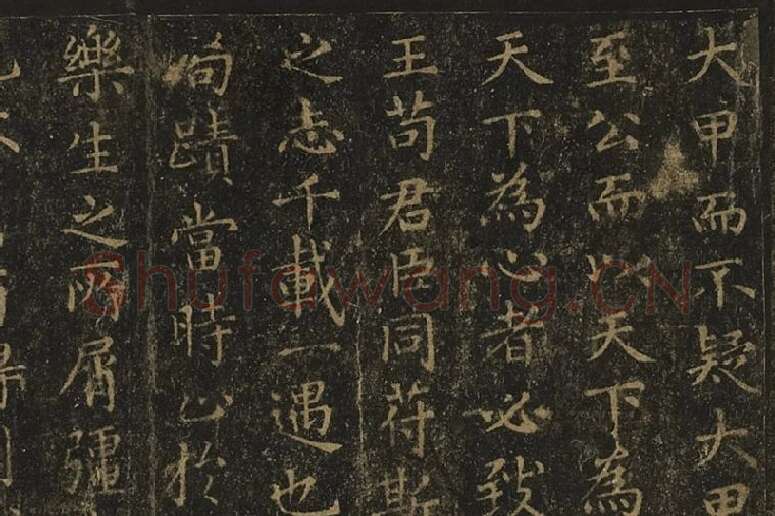 大甲而不疑大甲
至公而以天下為
天下為心者必致
王苟君臣同苻斯
之志千載一遇也
蹟當時止於
樂生之所屑彊
Shufawang.CN